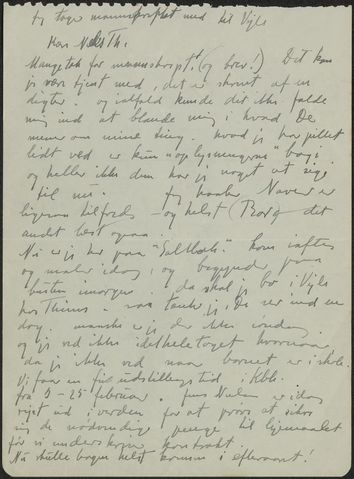 Jeg tager manuskriptet med til Vejle
Kære
Mange tak for manuskript! (og brev!) Det kan
jeg være tjent med, det er skrevet af en
digter. og ialfald kunde det ikke falde
mig ind at blande mig i hvad De
mener om mine ting. hvad jeg har pillet
lidt ved er kun "oplysningerne" bagi
og heller ikke dem har jeg noget at sige
til nu. Jeg haaber Naver er
ligesaa tilfreds - og helst (Borg det
andet best ogsaa.
Nu er jeg her paa "Saltbæk" kom iaftes
og maler idag, og begynder paa
busten imorgen. da skal jeg bo i Vejle
hos Thinus - saa tænker jeg De ser ind en
dag. maaske er jeg der ikke søndag
og jeg ved ikke idethele taget hvornaar
da jeg ikke ved naar barnet er i skole.
Vi faar en fin udstillingstid i Kbh.
fra 5 - 25 februar. Jens Nielsen er idag
rejst ud i verden for at prøve at sikre
sig de nødvendige penge til lejemaalet
før vi underskriver kontrakt.
Nu skulle bogen helst komme i efteraaret!